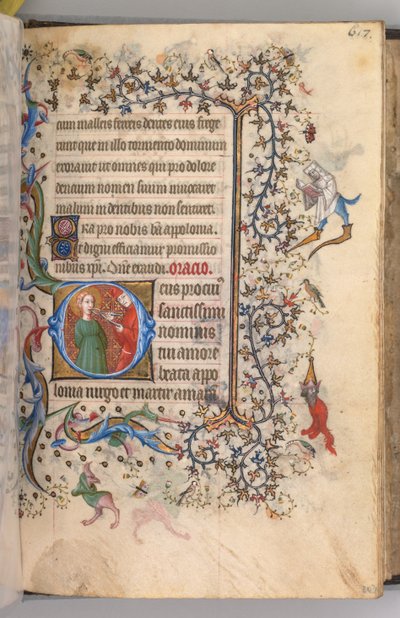 617.
cum malleis ferreis dentes eius frege
runt que in illo tormento dominum
exoravit ut omnes qui pro dolore
dencium nomen suum invocaret
malum in dentibus non sentiret.
Ora pro nobis bã appolonia.
Ut digni efficiamur promissio
nibus xpi. Dñe exaudi. Oracio.
Deus pro cui⁹
sanctissimi
nominis
tui amore
beata appo
lonia virgo et martir